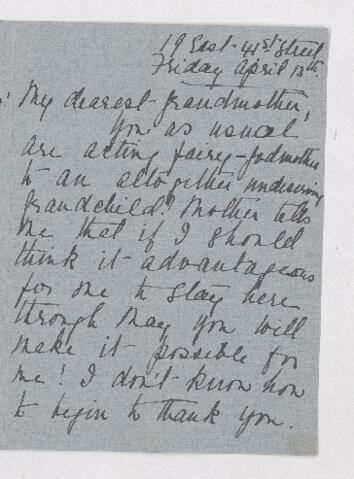 19 East 41st Street
Friday April 13th.
My dearest grandmother,
You as usual
are acting fairy-godmother
to an altogether undeserving
grandchild! Mother tells
me that if I should
think it advantageous
for me to stay here
through May you will
make it possible for
me! I don't know how
to begin to thank you.